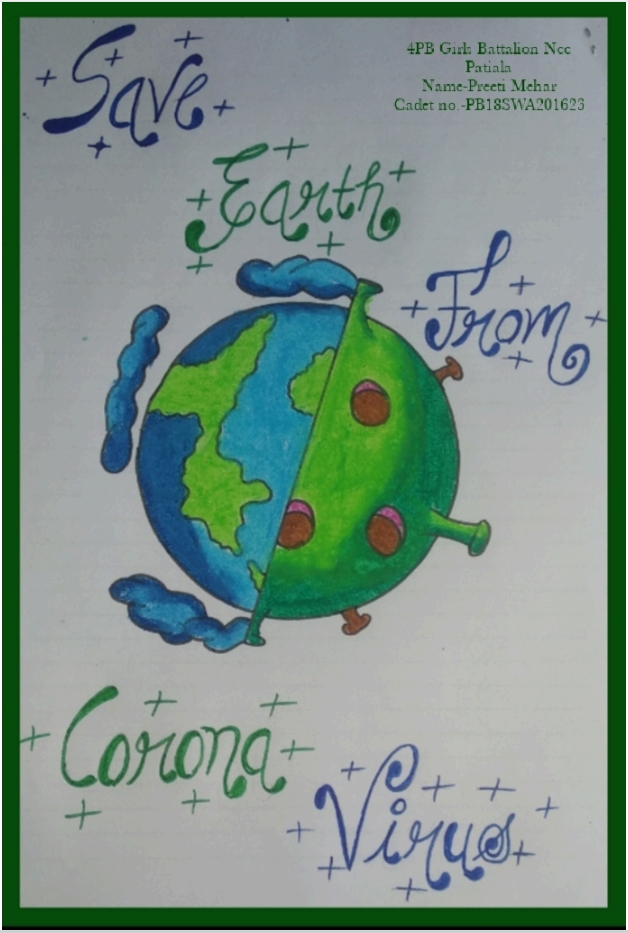 4PB Girls Battalion Ncc
Patiala
Name-Preeti Mehar
Cadet no.-PB18SWA201623
Save
Earth
From
Corona
Virus